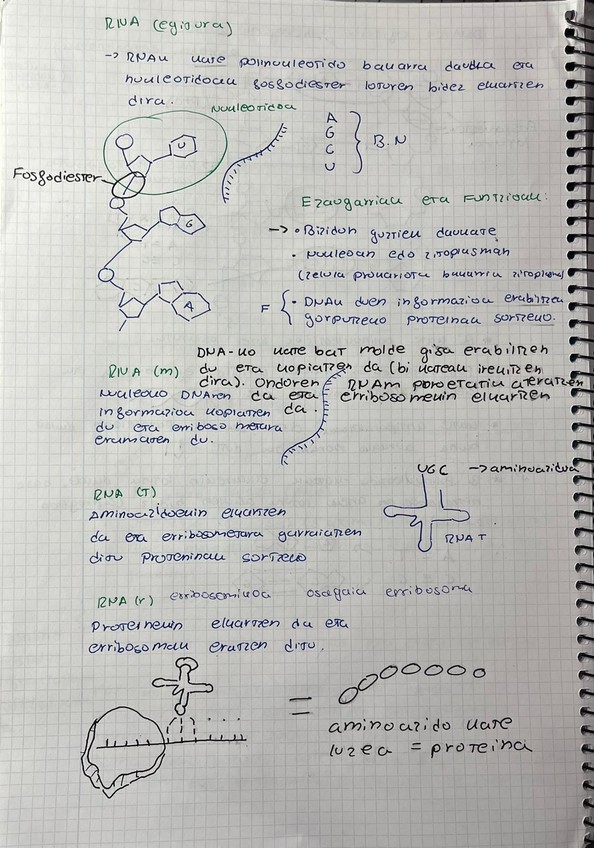 RNA (egitura)
→ RNAk kate polinukleotido bakarra dauka eta
nukleotidoak fosfodiester loturen bidez elkartzen
dira.
Nukleotidoa
U
A
G
C
U
B.N
Fosfodiester
G
A
Ezaugarriak eta Funtzioak:
→ • Bizidun guztiek daukate
• Nukleoan edo zitoplasman
(zelula prokariota bakarrik zitoplasma)
F
• DNAk duen informazioa erabiltzea
gorputzeko proteinak sortzeko.
DNA-ko kate bat molde gisa erabiltzen
RNA (m)
du eta kopiatzen da (bi kateak irekitzen
dira). Ondoren RNAm poroetatik ateratzen
da eta erribosomekin elkartzen
Nukleoko DNAren
informazioa kopiatzen da.
du eta erribosometara
eramaten du.
UGC → aminoazidoa
RNA (T)
Aminoazidoekin elkartzen
da eta erribosometara garraiatzen
ditu proteinak sortzeko
RNA T
RNA (r) erribosomikoa osagaia erribosoma
Proteinekin elkartzen da eta
erribosomak eratzen ditu.
=
aminoazido kate
luzea = proteina